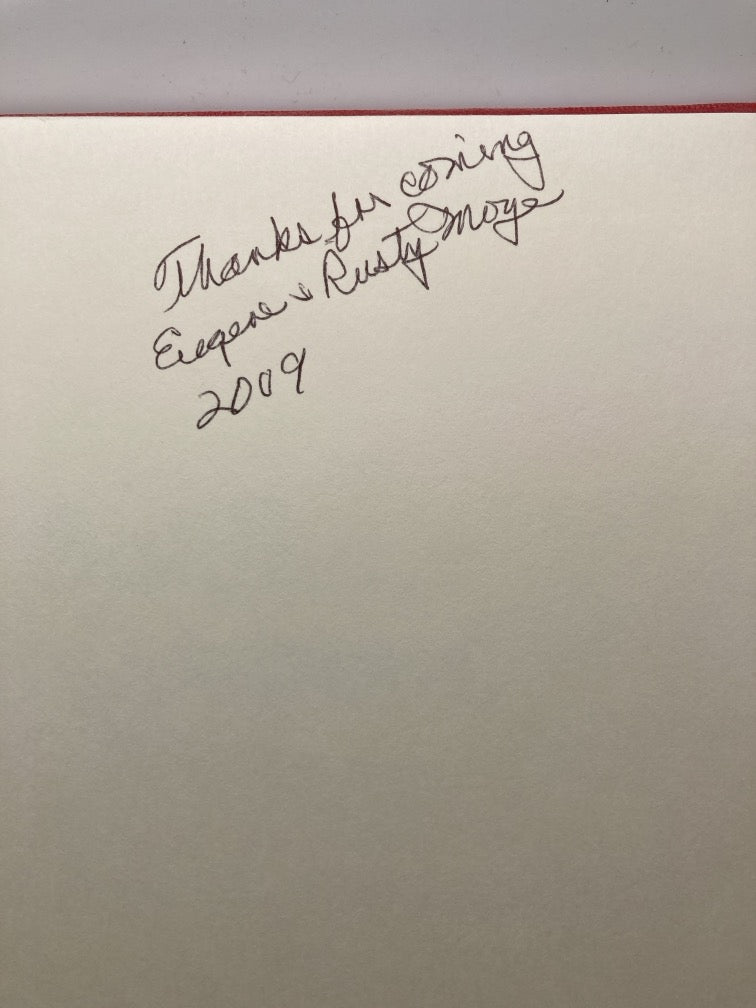 Thanks for coming
Eugene & Rusty Moye
2009